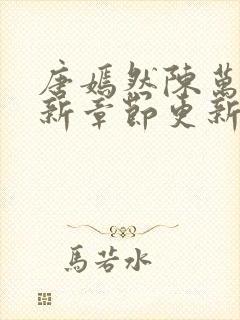 唐嫣然陳萬
新章節更新
馬若水